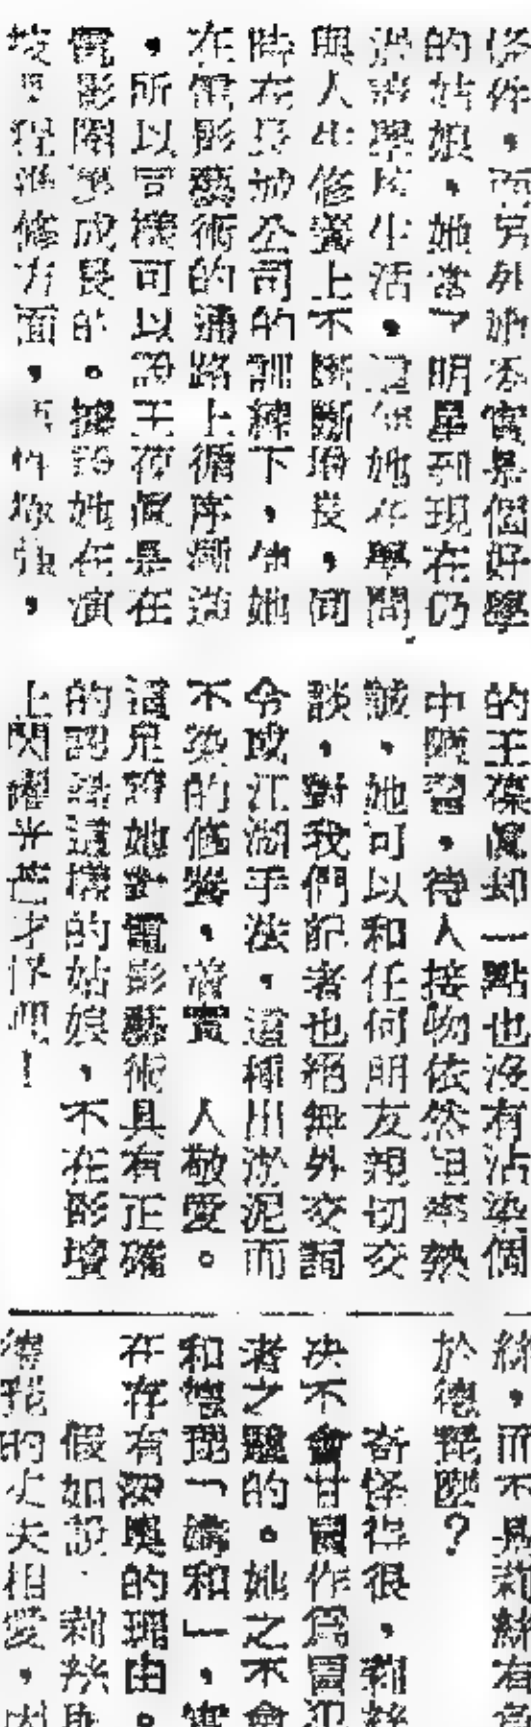 係件，而另外她本實是個好學
的姑娘，她當了明星到現在仍
過學生生活，這使她在學問
與人生修養上不斷增長，同
時在公司的訓練下，使她
在電影藝術的通路上循序漸進
，所以可以說王夜真是在
電影圈成長的。據說她在演
技修方面，
的王葆真却一點也沒有沾染個
中陋習，待人接物依然坦率熱
誠，她可以和任何朋友親切交
談，對我們記者也絕無外交詞
令或江湖手法，這種出淤泥而
不染的修養，著實 人敬愛。
這足證她對電影藝術具有正確
的認識這樣的姑娘，不在影壇
上閃耀光芒才怪呢！
絲，而不是莉絲有意
於德琵麼？
奇怪得很，莉絲
决不會甘冒作爲冒犯
者之醜的。她之不會
和德琵「媾和」，實
在存有深奧的理由。
假如說 莉絲與
德琵的丈夫相愛，因